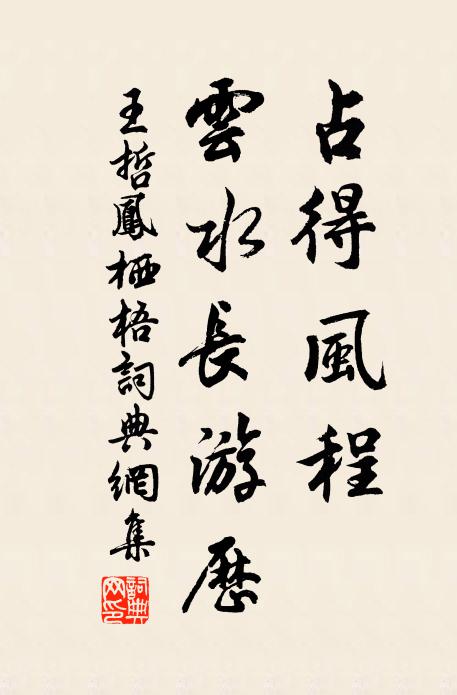 占得風程
雲水長游歷
王哲鳳栖梧詞典網集
詞典
网印